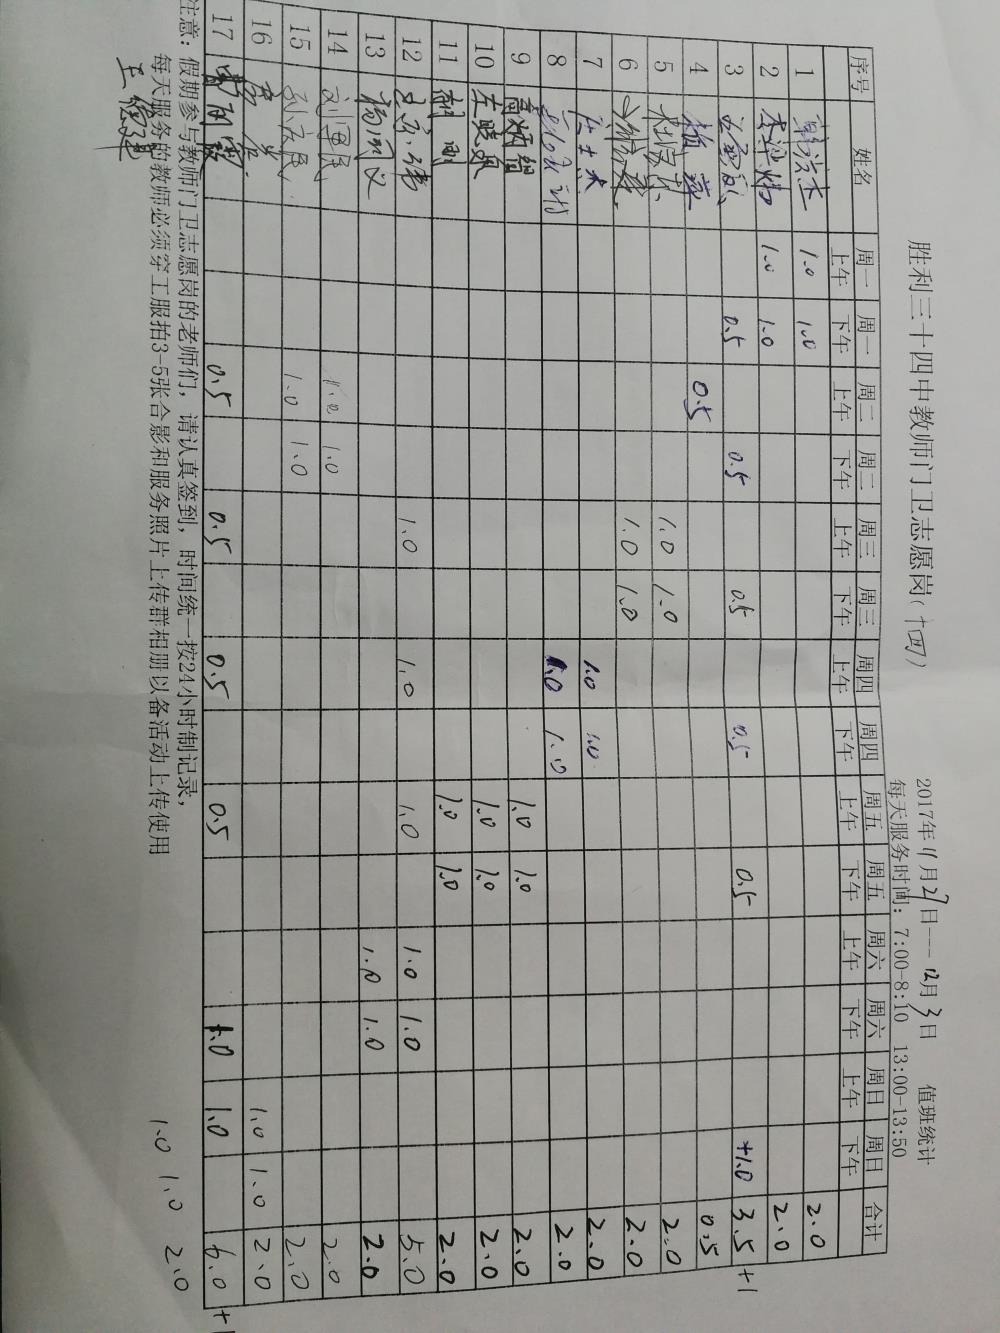 胜利三十四中教师门卫志愿岗(十四)
2017年11月27日---12月3日 值班统计
每天服务时间：7:00-8:10 13:00-13:50
序号 姓名 周一上午 周一下午 周二上午 周二下午 周三上午 周三下午 周四上午 周四下午 周五上午 周五下午 周六上午 周六下午 周日上午 周日下午 合计
1 1.0 1.0 2.0
2 1.0 1.0 2.0
3 0.5 0.5 0.5 0.5 0.5 +1.0 3.5 +1
4 0.5 0.5
5 1.0 1.0 2.0
6 1.0 1.0 2.0
7 1.0 1.0 2.0
8 1.0 1.0 2.0
9 1.0 1.0 2.0
10 左晓泉 1.0 1.0 2.0
11 1.0 1.0 2.0
12 1.0 1.0 1.0 1.0 1.0 5.0
13 杨丙义 1.0 1.0 2.0
14 刘军民 1.0 1.0 2.0
15 1.0 1.0 2.0
16 1.0 1.0 2.0
17 0.5 0.5 0.5 0.5 1.0 1.0 6.0 +1
注意：假期参与教师门卫志愿岗的老师们，请认真签到，时间统一按24小时制记录，
每天服务的教师必须穿工服拍3-5张合影和服务照片上传群相册以备活动上传使用
1.0 1.0 2.0